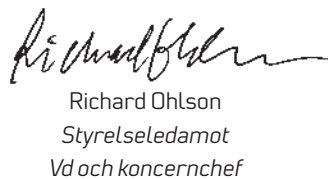 Richard Ohlson
Richard Ohlson
Styrelseledamot
Vd och koncernchef